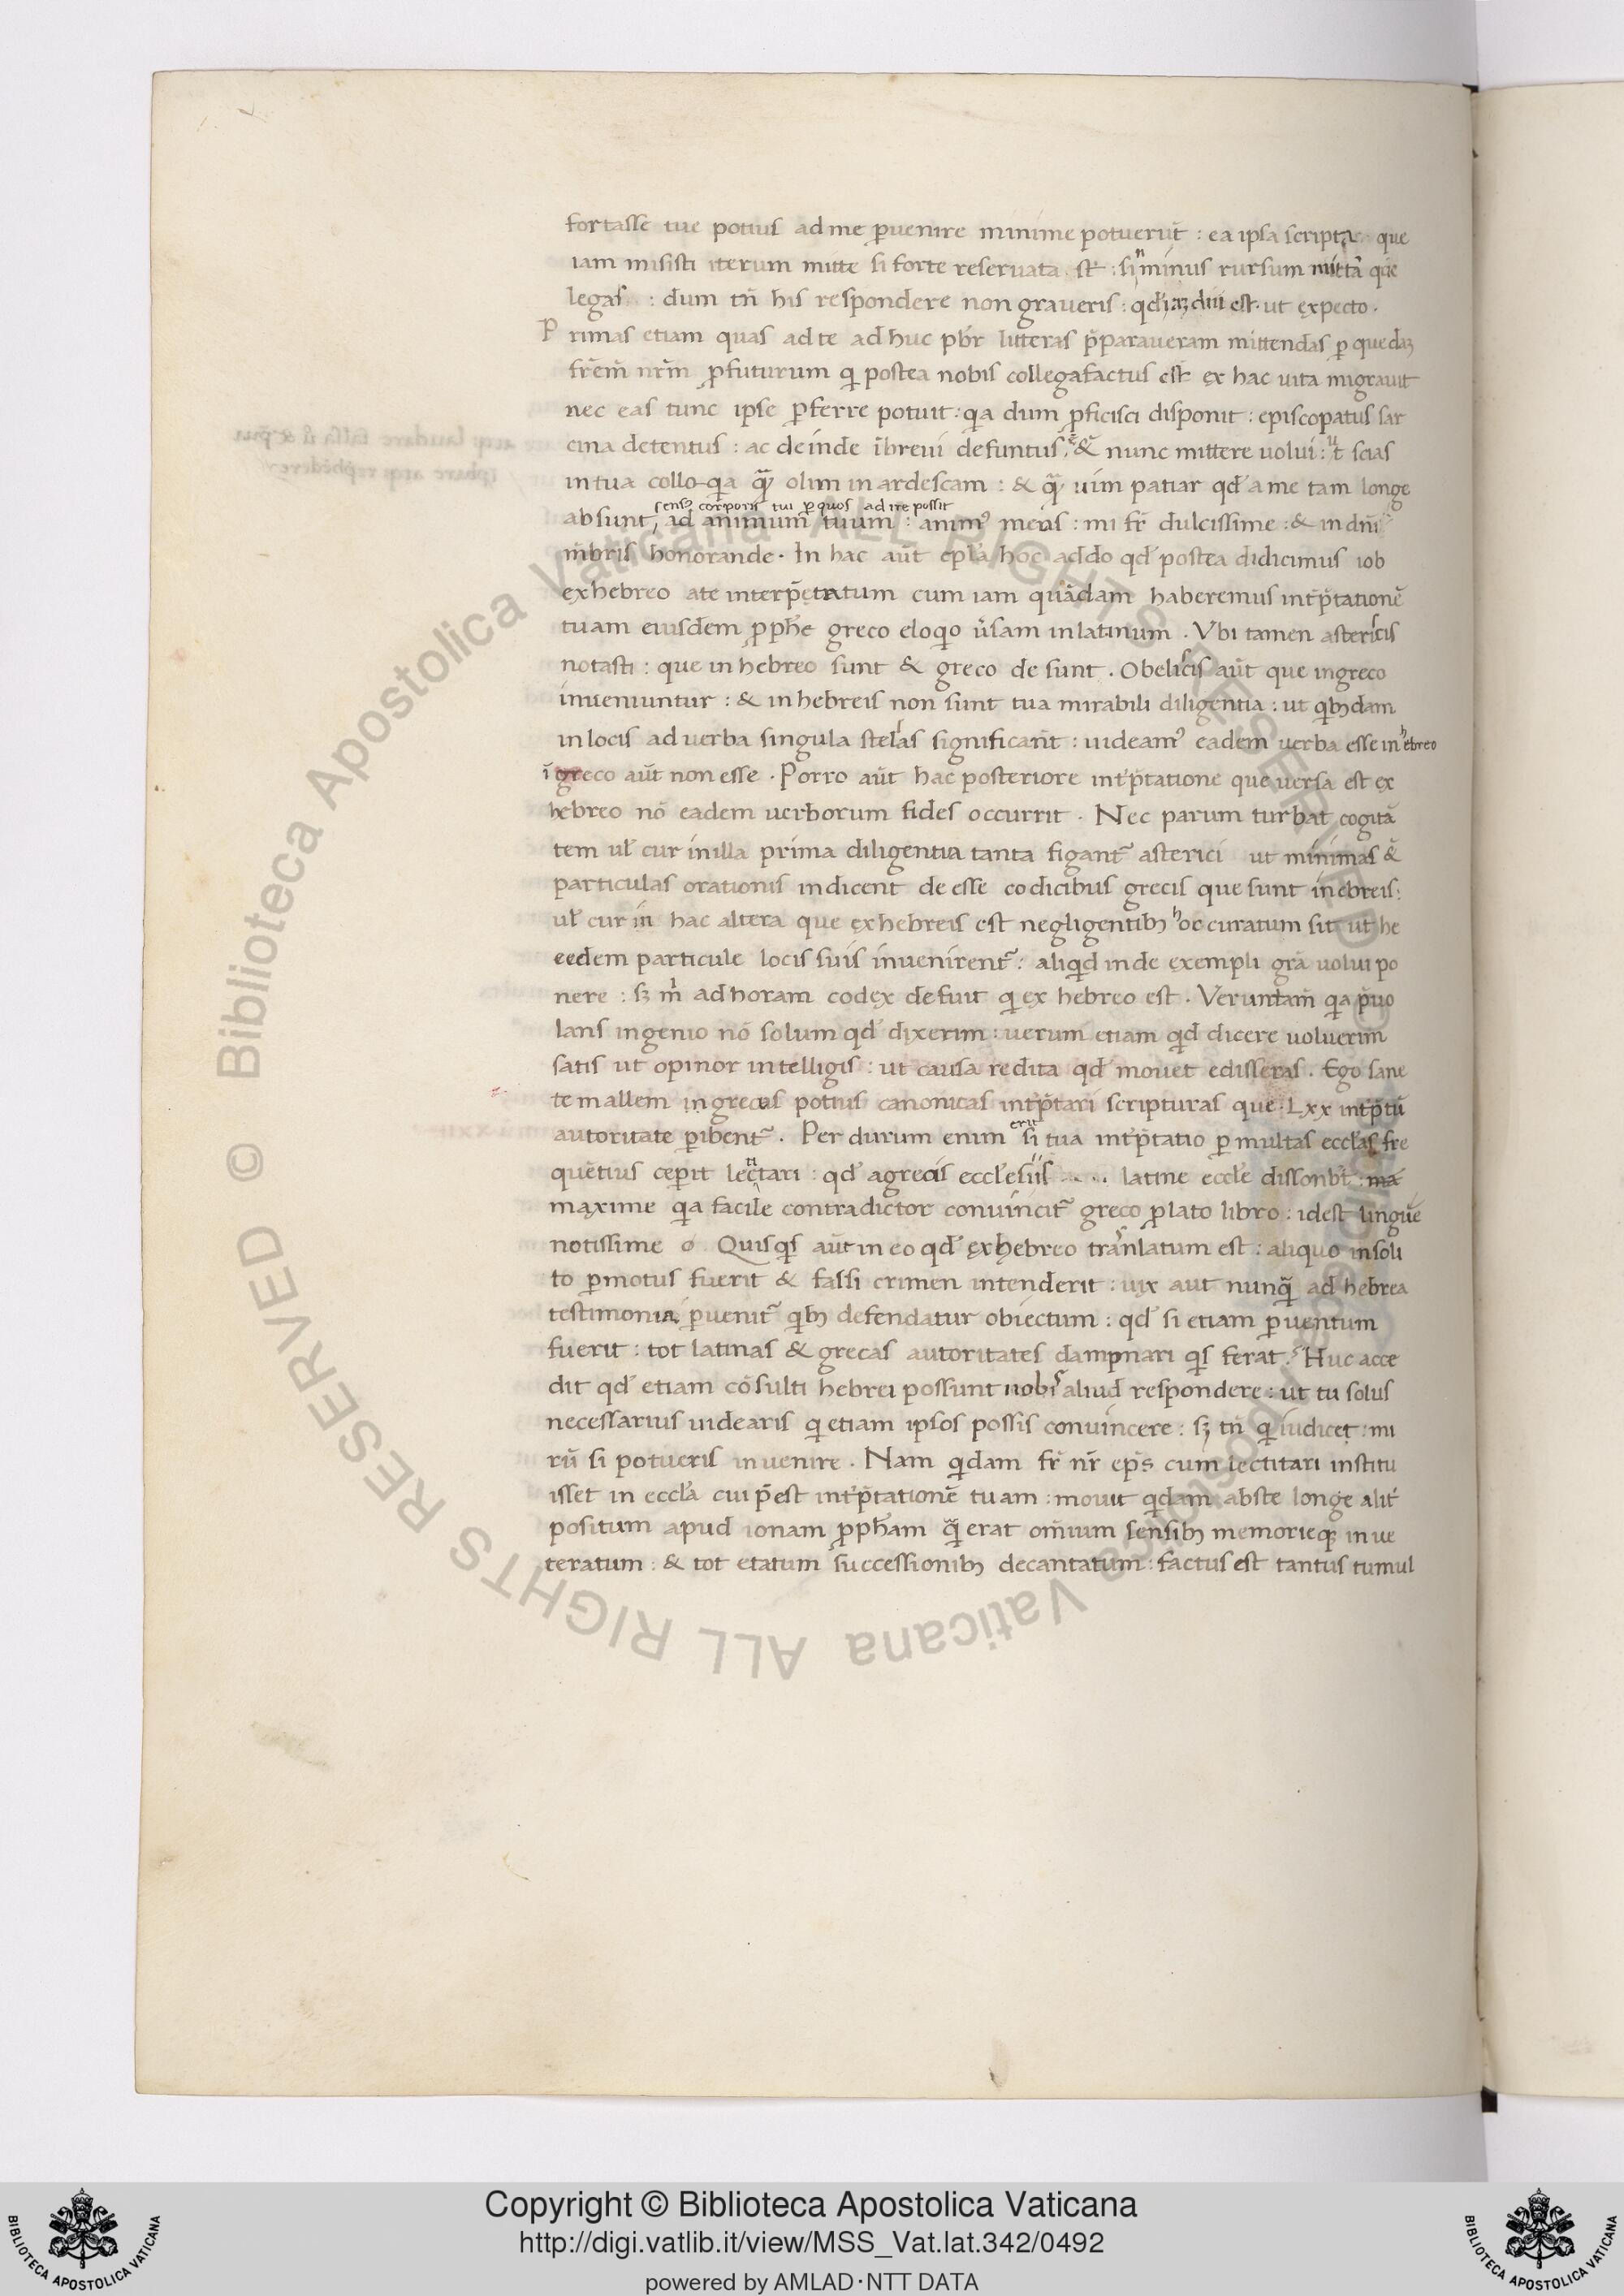 fortasse tue potius ad me ꝑuenire minime potuerūt : ea ipsa scripta que
iam misisti iterum mitte si forte reseruata st̄ : sin minus rursum mittā que
legas : dum tn̄ his respondere non graueris : qđ iaꝫ diu est ut ęxpecto .
Primas etiam quas ad te adhuc pb̄r litteras p̄paraueram mittendas ꝑ quedaꝫ
fr̄em nr̄m ꝓfuturum qi postea nobis collega factus est ęx hac uita migrauit
nec eas tunc ipse ꝑferre potuit : qa dum ꝓficisci disponit : episcopatus sar
cina detentus : ac deinde ībreui defuntus ē & nunc mittere uolui : ut scias
in tua colloqia quā olim inardescam : & quā uim patiar qđ a me tam longe
absunt sensꝫ corporis tui ꝑ quos adire possit ad animum tuum : animꝰ meus : mi fr̄ dulcissime : & in dn̄i
mb̄ris honorande . In hac aūt epl̄a hoc addo qđ postea didicimus iob
ex hebreo a te interp̄tatum cum iam quādam haberemus int̄p̄tationē
tuam eiusdem ꝓph̄e greco eloqio ūsam in latinum . Vbi tamen astericis
notasti : que in hebreo sunt & greco desunt . Obeliscis aūt que in greco
inueniuntur : & in hebreis non sunt tua mirabili diligentia : ut qibꝫdam
in locis ad uerba singula stellas significant : uideamꝰ eadem uerba esse in hebreo
ī greco aūt non esse . Porro aūt hac posteriore int̄p̄tatione que uersa est ęx
hebreo nō eadem uerborum fides occurrit . Nec parum turbat cogitā
tem ul̄ cur in illa prima diligentia tanta figantᷣ asterici ut minimas &
particulas orationis indicent deesse codicibus grecis que sunt in ebreis :
ul̄ cur in hac altera que ęx hebreis est negligentibꝫ hoc curatum sit ut he
eedem particule locis suis inuenirentᷣ : aliqid inde ęxempli gr̄a uolui po
nere : sꝫ m̄ ad horam codęx defuit qi ęx hebreo est . Veruntam̄ qa p̄uo
lans ingenio nō solum qđ dixerim : uerum etiam qid dicere uoluerim
satis ut opinor intelligis : ut causa redita qđ mouet edisseras . Ego sane
te mallem in grecas potius canonicas int̄p̄tari scripturas que . Lxx int̄p̄tū
autoritate ꝑibentᷣ . Per durum enim erit si tua int̄p̄tatio ꝑ multas eccl̄as fre
quētius ceꝑit lectitari : qđ a grecis eccl̄esiis latine eccl̄e dissonab̄t : ma
maxime qa facile contradictor conuincitᷣ greco ꝓlato libro : idest lingue
notissime . Quisqis aūt in eo qđ ęx hebreo tranlatum est : aliquo insoli
to ꝑmotus fuerit & falsi crimen intenderit : uix aut nunqā ad hebrea
testimonia ꝑuenitᷣ qibꝫ defendatur obiectum : qđ si etiam ꝑuentum
fuerit : tot latinas & grecas autoritates dampnari qis ferat . Huc acce
dit qđ etiam cōsulti hebrei possunt nobis aliud respondere : ut tu solus
necessarius uidearis qi etiam ipsos possis conuincere : sꝫ tn̄ qi iudicet : mi
rū si potueris inuenire . Nam qidam fr̄ nr̄ ep̄s cum lectitari institu
isset in eccl̄a cui p̄est int̄p̄tationē tuam : mouit qidam abste longe alit̄
positum apud ionam ꝓph̄am qā erat om̄ium sensibꝫ memorieqꝫ inue
teratum : & tot etatum successionibꝫ decantatum : factus est tantus tumul
© Biblioteca Apostolica Vaticana ALL RIGHTS RESERVED
Copyright © Biblioteca Apostolica Vaticana
http://digi.vatlib.it/view/MSS_Vat.lat.342/0492
powered by AMLAD·NTT DATA
BIBLIOTECA APOSTOLICA VATICANA
BIBLIOTECA APOSTOLICA VATICANA